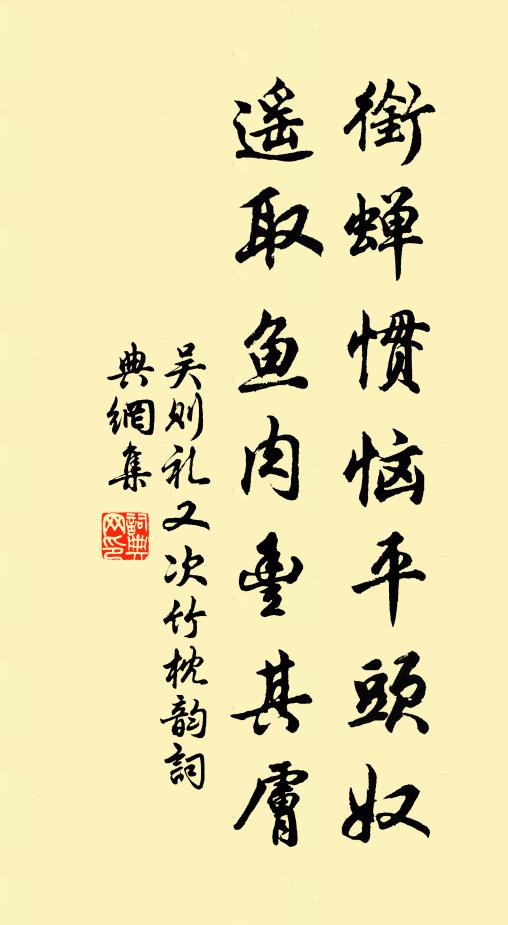 銜蝉惯恼平頭奴
遥取鱼肉豊其膚
吴则礼又次竹枕韵詞
典網集
詞典
网印